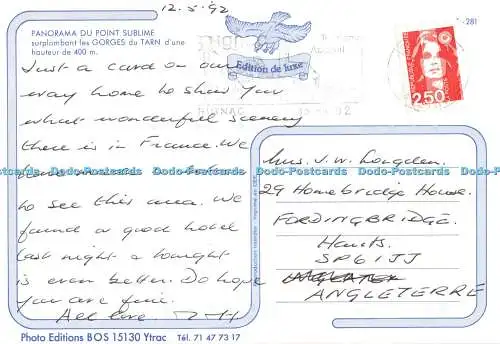 12.5.92
PANORAMA DU POINT SUBLIME
surplombant les GORGES du TARN d'une
hauteur de 400 m.
Edition de luxe
2,50
281
Just a card on our
way home to show you
what wonderful scenery
there is in France. We
to see this area. We
found a good hotel
last night & tonight
is even better. Do hope
you are fine.
All love.
Mrs. J. W. Longden.
29 Homebridge House.
FORDINGBRIDGE.
Hants.
SP6 1JJ
ANGLETERRE
Dodo-Postcards Dodo-Postcards Dodo-Postcards
Photo Editions BOS 15130 Ytrac Tél. 71 47 73 17